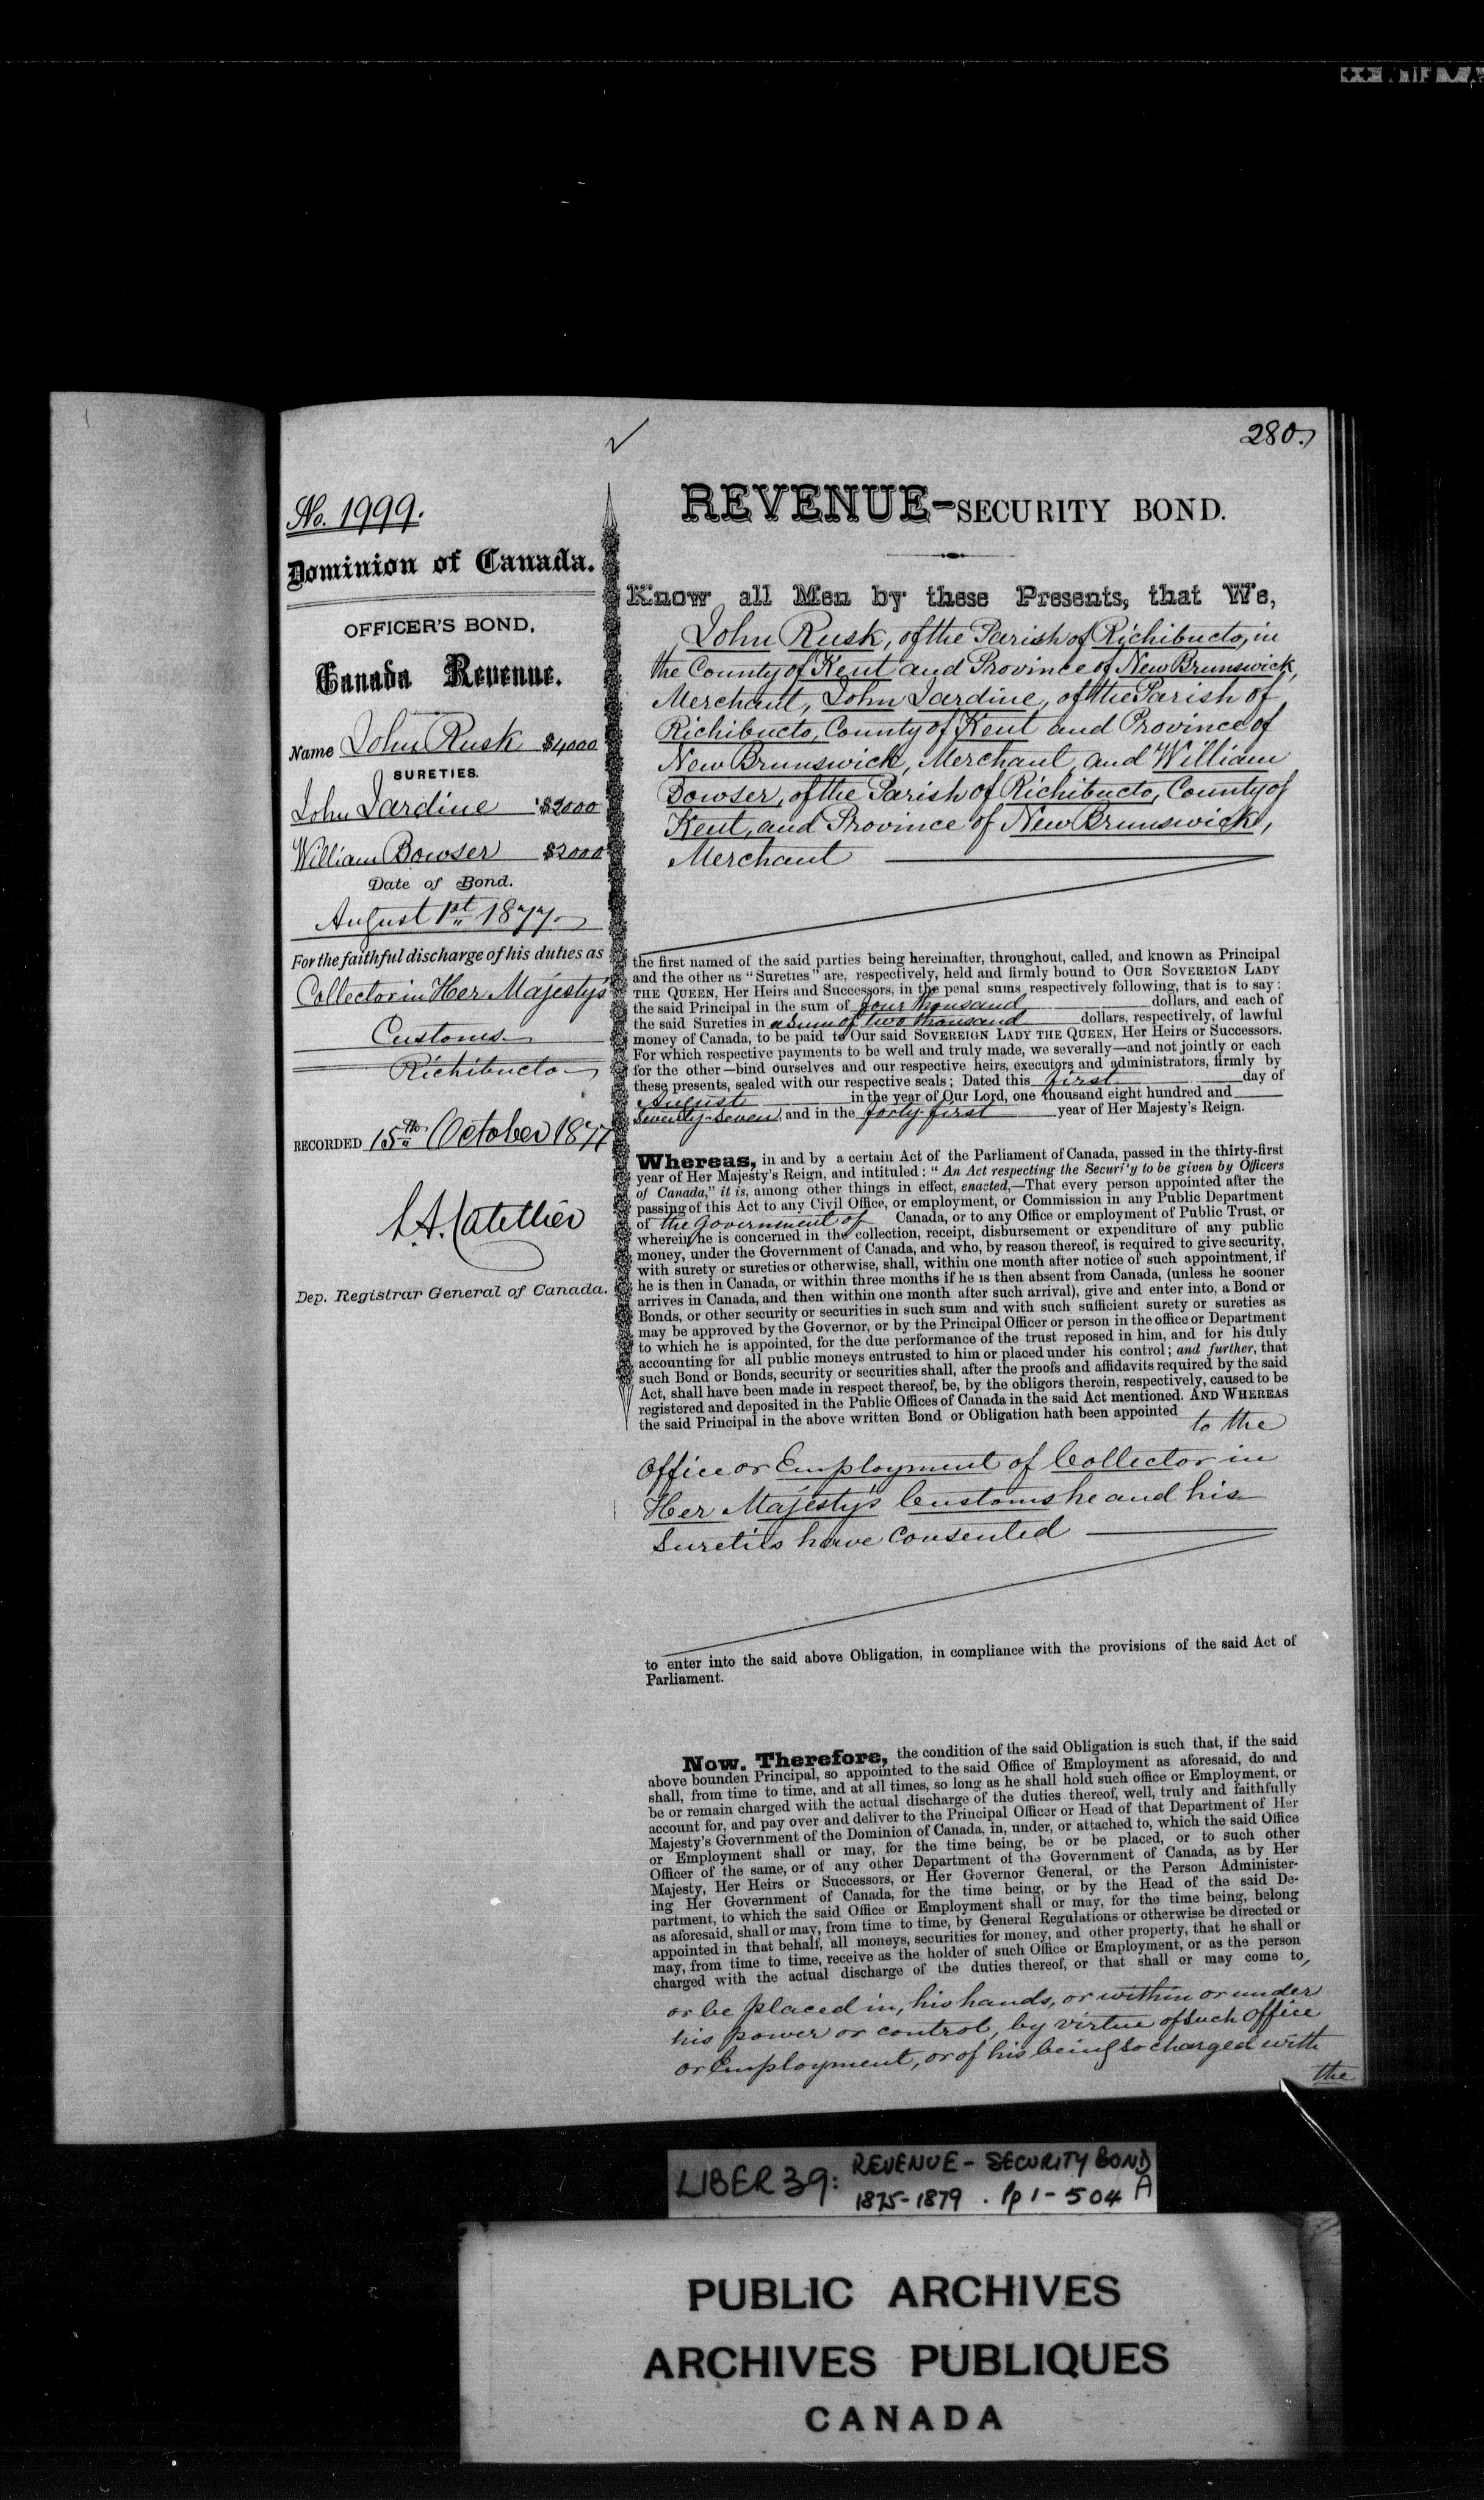 280.
No. 1999.
Dominion of Canada.
OFFICER'S BOND.
Canada Revenue.
Name John Rusk $4000
SURETIES.
John Jardine $2000
William Bowser $2000
Date of Bond.
August 1st 1877.
For the faithful discharge of his duties as
Collector in Her Majesty's
Customs
Richibucto
RECORDED 15th October 1877
L.A. Catellier
Dep. Registrar General of Canada.
REVENUE-SECURITY BOND.
Know all Men by these Presents, that We,
John Rusk, of the Parish of Richibucto, in
the County of Kent and Province of New Brunswick,
Merchant, John Jardine, of the Parish of
Richibucto, County of Kent and Province of
New Brunswick, Merchant, and William
Bowser, of the Parish of Richibucto, County of
Kent, and Province of New Brunswick,
Merchant
the first named of the said parties being hereinafter, throughout, called, and known as Principal
and the other as "Sureties" are, respectively, held and firmly bound to OUR SOVEREIGN LADY
THE QUEEN, Her Heirs and Successors, in the penal sums respectively following, that is to say:
the said Principal in the sum of four thousand dollars, and each of
the said Sureties in a sum of two thousand dollars, respectively, of lawful
money of Canada, to be paid to Our said SOVEREIGN LADY THE QUEEN, Her Heirs or Successors.
For which respective payments to be well and truly made, we severally—and not jointly or each
for the other—bind ourselves and our respective heirs, executors and administrators, firmly by
these presents, sealed with our respective seals; Dated this first day of
August in the year of Our Lord, one thousand eight hundred and
Seventy-Seven, and in the forty-first year of Her Majesty's Reign.
Whereas, in and by a certain Act of the Parliament of Canada, passed in the thirty-first
year of Her Majesty's Reign, and intituled: "An Act respecting the Security to be given by Officers
of Canada," it is, among other things in effect, enacted,—That every person appointed after the
passing of this Act to any Civil Office, or employment, or Commission in any Public Department
of the Government of Canada, or to any Office or employment of Public Trust, or
wherein he is concerned in the collection, receipt, disbursement or expenditure of any public
money, under the Government of Canada, and who, by reason thereof, is required to give security,
with surety or sureties or otherwise, shall, within one month after notice of such appointment, if
he is then in Canada, or within three months if he is then absent from Canada, (unless he sooner
arrives in Canada, and then within one month after such arrival), give and enter into, a Bond or
Bonds, or other security or securities in such sum and with such sufficient surety or sureties as
may be approved by the Governor, or by the Principal Officer or person in the office or Department
to which he is appointed, for the due performance of the trust reposed in him, and for his duly
accounting for all public moneys entrusted to him or placed under his control; and further, that
such Bond or Bonds, security or securities shall, after the proofs and affidavits required by the said
Act, shall have been made in respect thereof, be, by the obligors therein, respectively, caused to be
registered and deposited in the Public Offices of Canada in the said Act mentioned. AND WHEREAS
the said Principal in the above written Bond or Obligation hath been appointed to the
Office or Employment of Collector in
Her Majesty's Customs he and his
Sureties have consented
to enter into the said above Obligation, in compliance with the provisions of the said Act of
Parliament.
Now. Therefore, the condition of the said Obligation is such that, if the said
above bounden Principal, so appointed to the said Office of Employment as aforesaid, do and
shall, from time to time, and at all times, so long as he shall hold such office or Employment, or
be or remain charged with the actual discharge of the duties thereof, well, truly and faithfully
account for, and pay over and deliver to the Principal Officer or Head of that Department of Her
Majesty's Government of the Dominion of Canada, in, under, or attached to, which the said Office
or Employment shall or may, for the time being, be or be placed, or to such other
Officer of the same, or of any other Department of the Government of Canada, as by Her
Majesty, Her Heirs or Successors, or Her Governor General, or the Person Administer-
ing Her Government of Canada, for the time being, or by the Head of the said De-
partment, to which the said Office or Employment shall or may, for the time being, belong
as aforesaid, shall or may, from time to time, by General Regulations or otherwise be directed or
appointed in that behalf, all moneys, securities for money, and other property, that he shall or
may, from time to time, receive as the holder of such Office or Employment, or as the person
charged with the actual discharge of the duties thereof, or that shall or may come to,
or be placed in, his hands, or within or under
his power or control, by virtue of such Office
or Employment, or of his being so charged with
the
LIBER 39: REVENUE - SECURITY BOND
1875-1879. Pp 1-504 A
PUBLIC ARCHIVES
ARCHIVES PUBLIQUES
CANADA